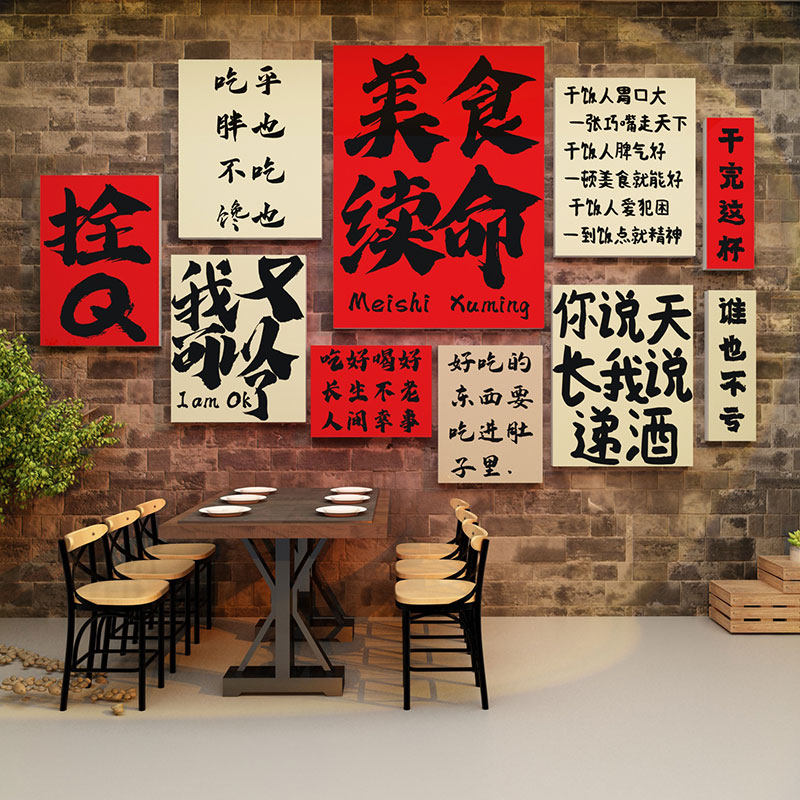 拴
Q
吃乎
胖也
不吃
馋也
我又
可以了
I am Ok
美食
续命
Meishi Xuming
吃好喝好
长生不老
人间幸事
好吃的
东西要
吃进肚
子里.
干饭人胃口大
一张巧嘴走天下
干饭人脾气好
一顿美食就能好
干饭人爱犯困
一到饭点就精神
你说天
长我说
递酒
干完这杯
谁也不亏